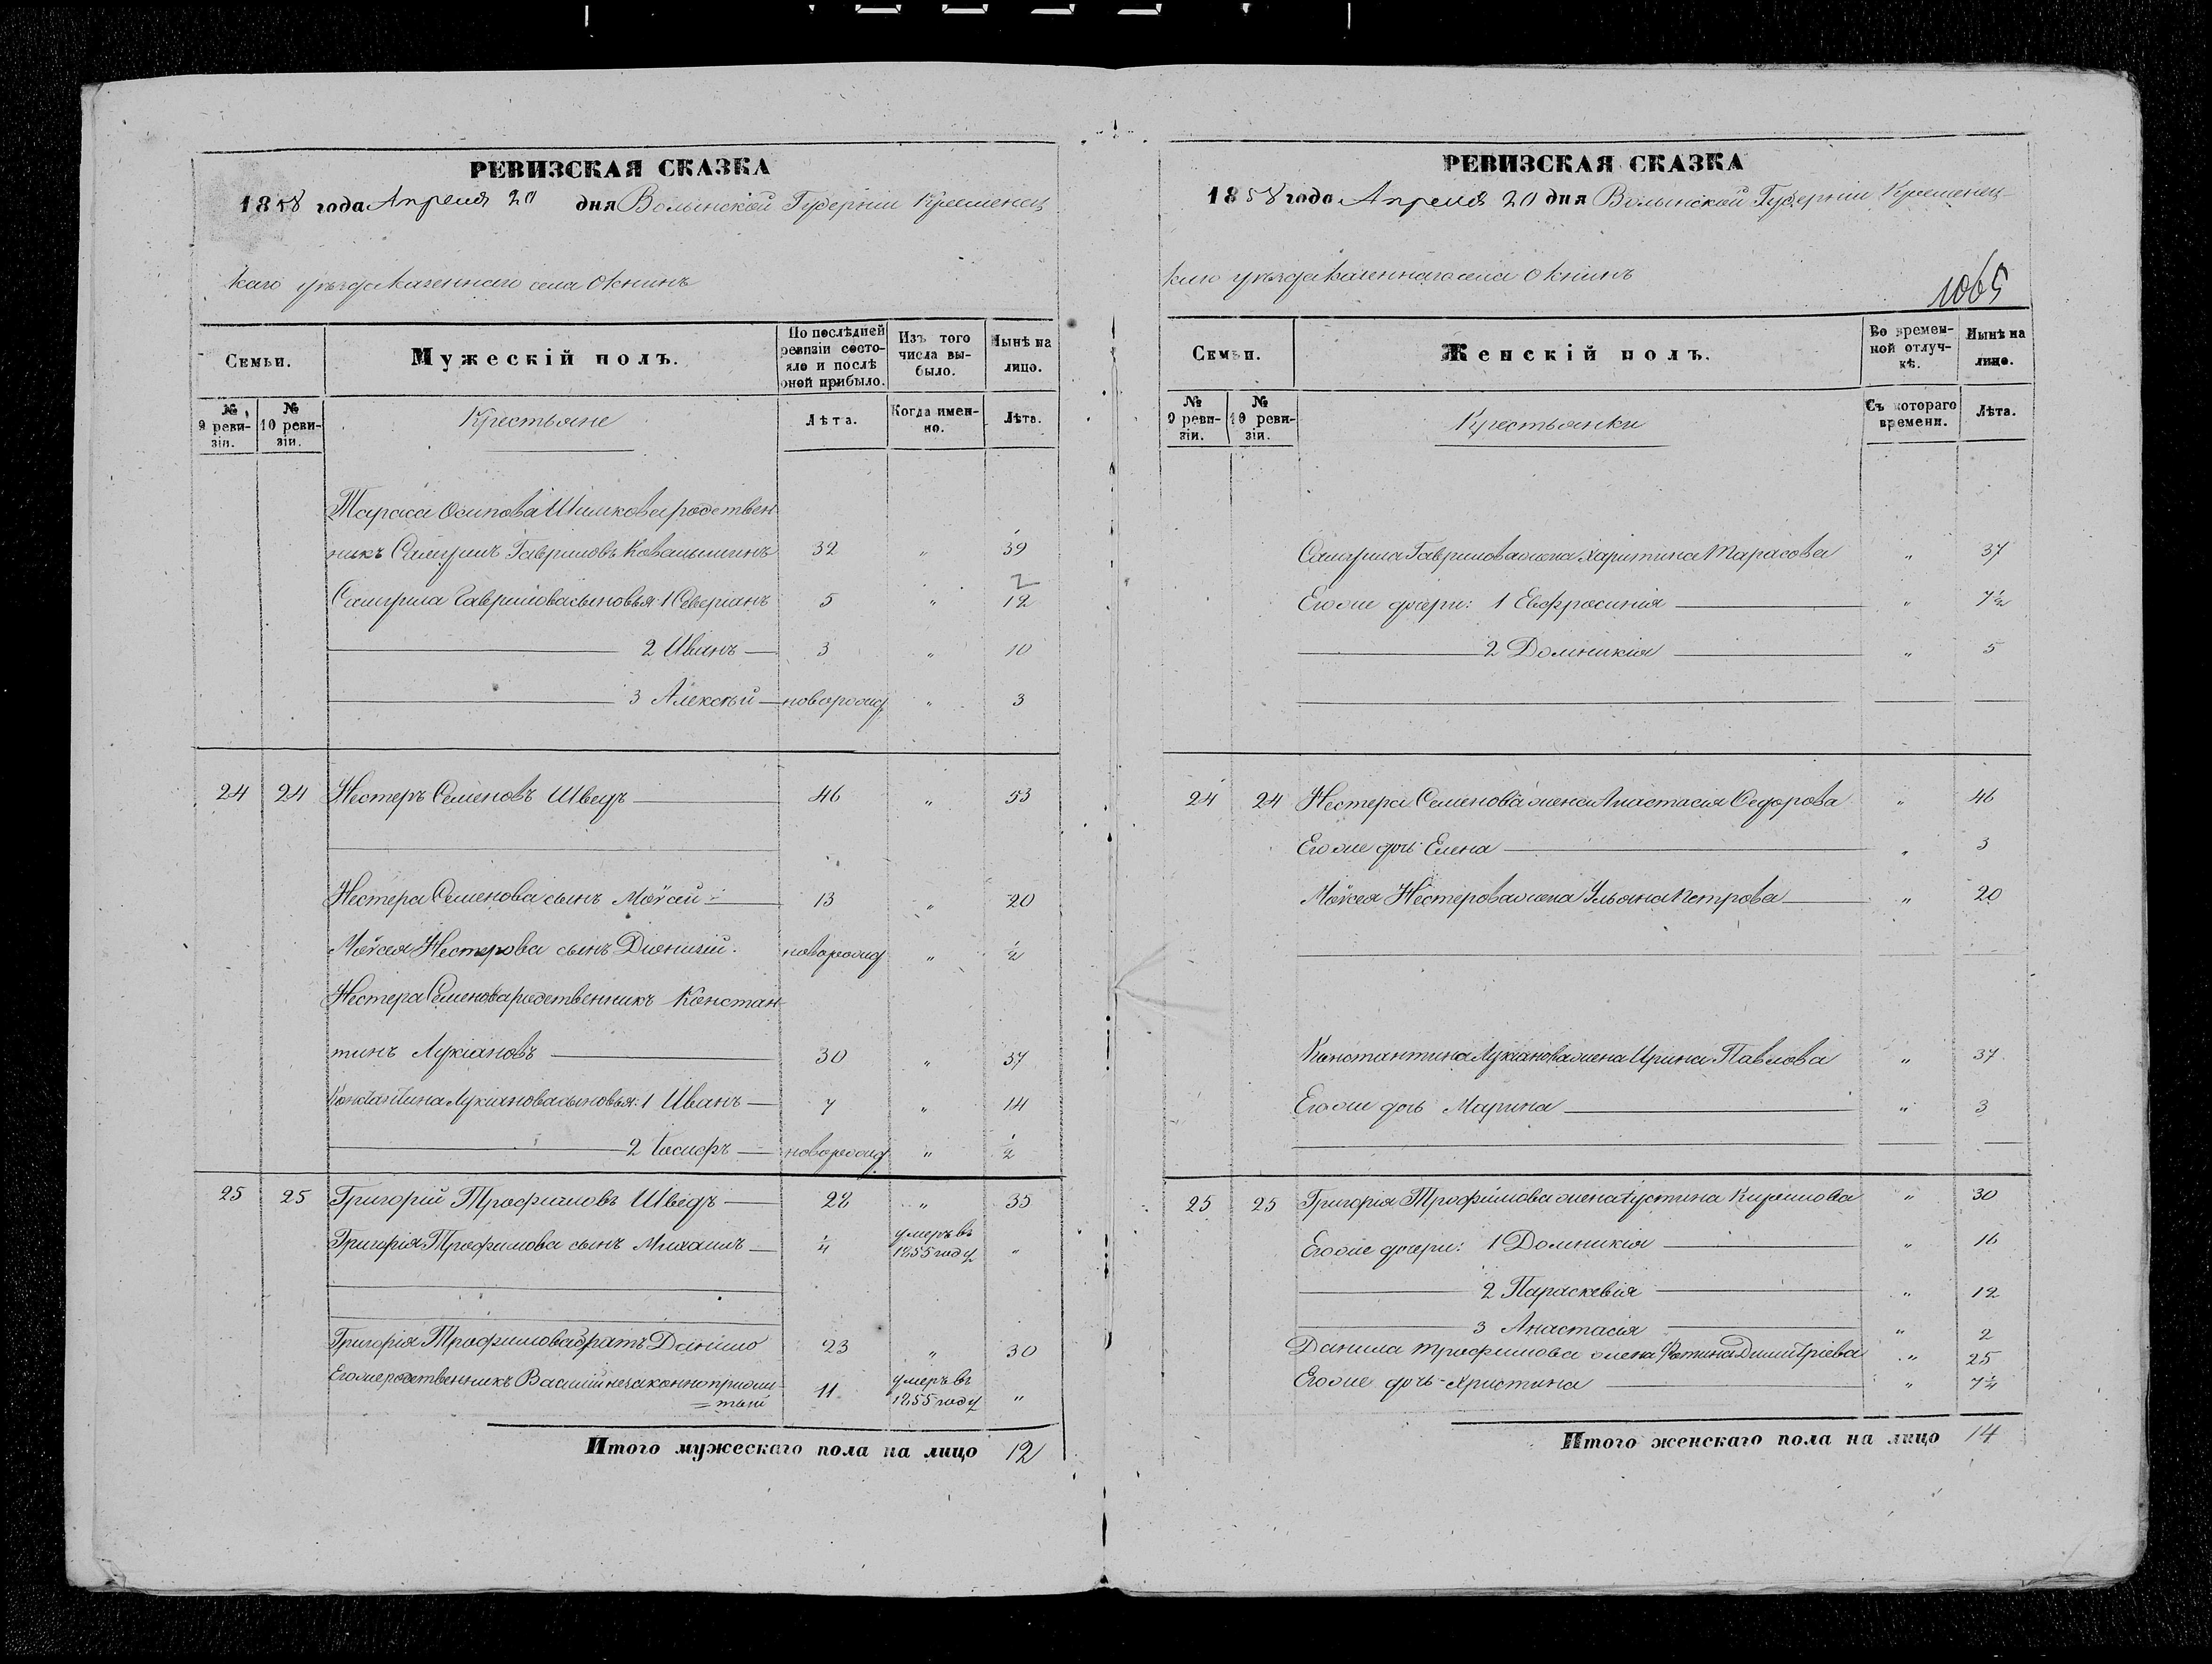 РЕВИЗСКАЯ СКАЗКА
1858 года Апреля 20 дня Волынской Губернiи Кременец
каго уѣзда казеннаго села Окнинъ
Семьи.
Мужескій полъ.
По послѣдней ревизіи состояло и послѣ оной прибыло.
Изъ того числа выбыло.
Нынѣ на лицо.
№ 9 ревизіи.
№ 10 ревизіи.
Крестьяне
Лѣта.
Когда именно.
Лѣта.
Тараса Осипова родствен
никъ Самуилъ Гавриловъ 32 " 39
Самуила Гаврилова сыновья: 1 Северіанъ 5 " 12
2 Иванъ 3 " 10
3 Алексѣй новорожд " 3
24 24 Нестеръ Семеновъ Шведъ 46 " 53
Нестера Семенова сынъ Моѵсей 13 " 20
Моѵсея Нестерова сынъ Діонизій новорожд " ½
Нестера Семенова родственникъ Констан
тинъ Лукіановъ 30 " 37
Константина Лукіанова сыновья: 1 Иванъ 7 " 14
2 Іосифъ новорожд " ½
25 25 Григорій Трофимовъ Шведъ 28 " 35
Григорія Трофимова сынъ Михаилъ ¼ умеръ въ 1855 году "
Григорія Трофимова братъ Данило 23 " 30
Его же родственникъ Василій незаконноприжи
=тый 11 умеръ въ 1855 году "
Итого мужескаго пола на лицо 12
РЕВИЗСКАЯ СКАЗКА
1858 года Апреля 20 дня Волынской Губерніи Кременец
каго уѣзда казеннаго села Окнинъ
1065
Семьи.
Женскій полъ.
Во временной отлучкѣ.
Нынѣ на лицо.
№ 9 ревизіи.
№ 10 ревизіи.
Крестьянки
Съ котораго времени.
Лѣта.
Самуила Гаврилова жена Харитина Тарасова " 37
Его же дочери: 1 Евфросинія " 7½
2 Домникія " 5
24 24 Нестера Семенова жена Анастасія Федорова " 46
Его же дочь Елена " 3
Моѵсея Нестерова жена Ульяна Петрова " 20
Константина Лукіанова жена Ирина Павлова " 37
Его же дочь Марина " 3
25 25 Григорія Трофимова жена Іустина Кирилова " 30
Его же дочери: 1 Домникія " 16
2 Параскевія " 12
3 Анастасія " 2
Данила Трофимова жена Димитріева " 25
Его же дочь Христина " 7¼
Итого женскаго пола на лицо 14